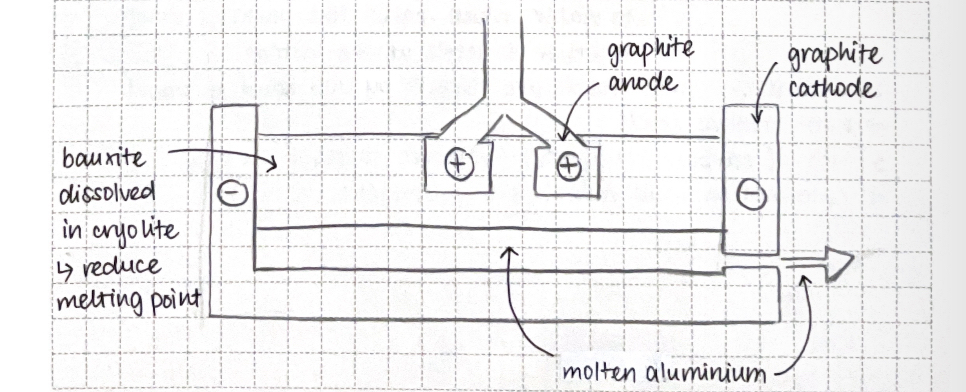 graphite
anode
graphite
cathode
bauxite
dissolved
in cryolite
↳ reduce
melting point
+
+
−
−
molten aluminium